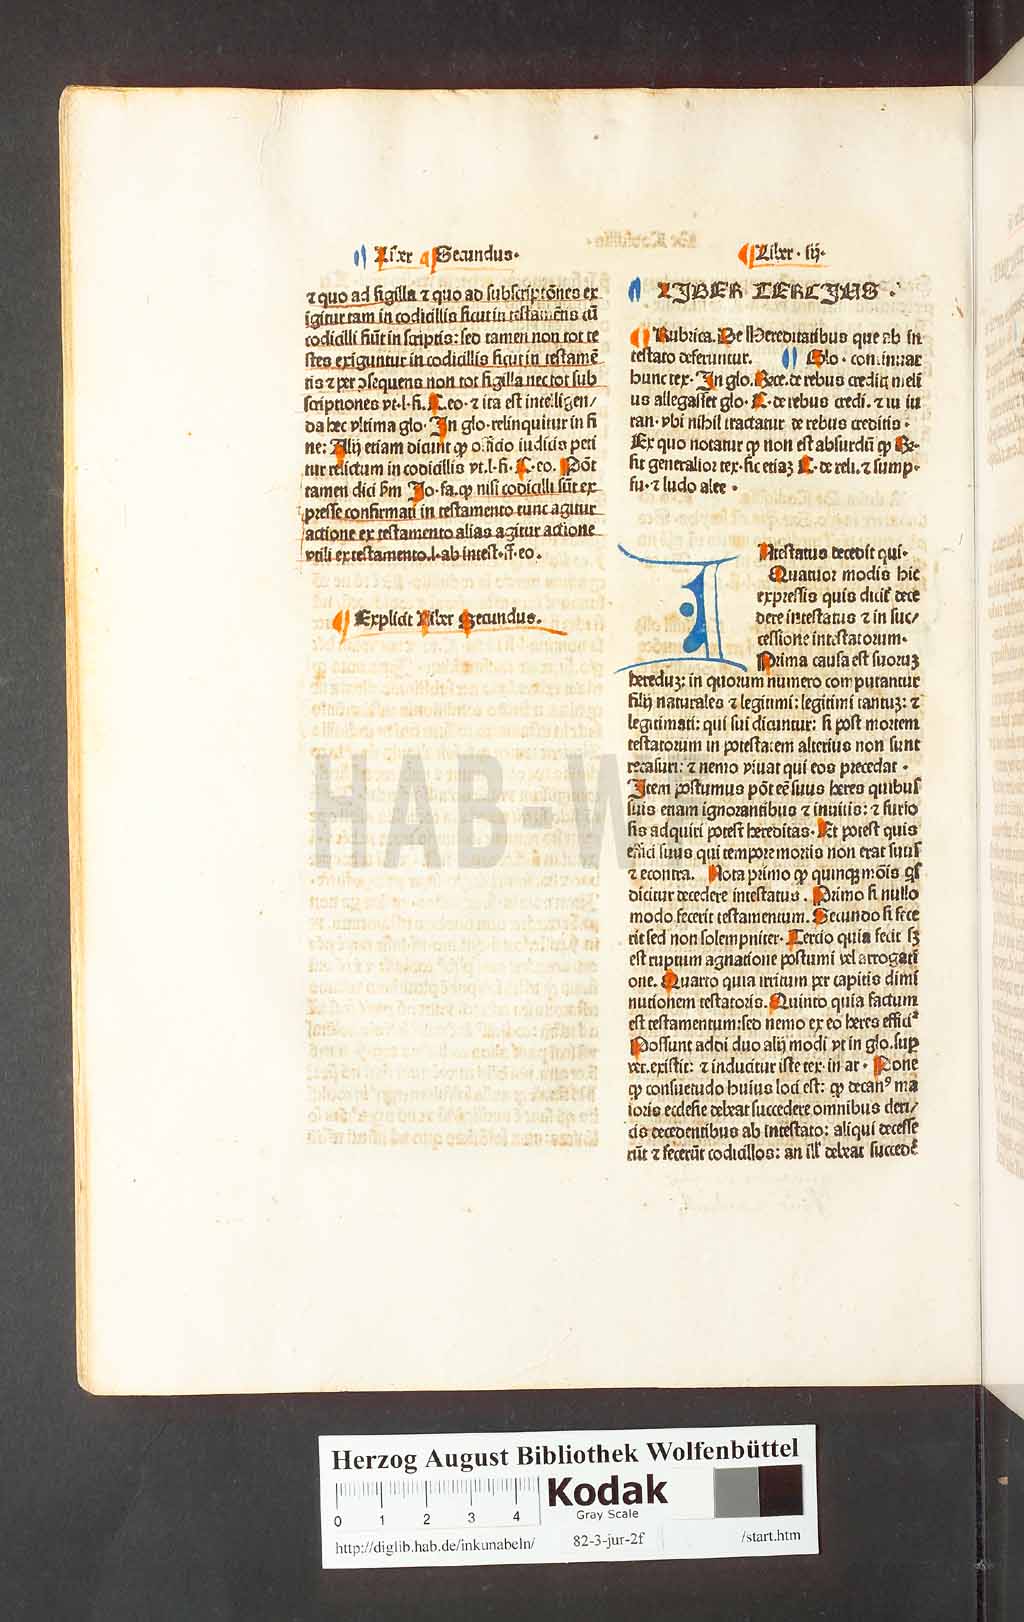 Liber Secundus·
⁊ quo ad sigilla ⁊ quo ad subscriptōnes ex
igitur tam in codicillis sicut in testamētis cū
codicilli fiūt in scriptis: sed tamen non tot te
stes exiguntur in codicillis sicut in testamē
tis ⁊ per ɔsequens non tot sigilla nec tot sub
scriptiones vt·l·fi. C·eo·⁊ ita est intelligen/
da hec vltima glo· In glo·relinquitur in fi
ne: Alij etiam dicunt ꝙ officio iudicis peti
tur relictum in codicillis vt·l·fi· C·eo. Pōt
tamen dici scd̄m Jo·fa·ꝙ nisi codicilli sūt ex
presse confirmati in testamento tunc agitur
actione ex testamento alias agitur actione
vtili ex testamento·l·ab intest·ff·eo.
Explicit Liber Secundus.
Liber· iij·
LIBER TERCIUS·
Rubrica. De Hereditatibus que ab in
testato deferuntur. Glo·continuat
hunc tex· In glo· Rece·de rebus crediti meli
us allegasset glo· C·de rebus credi·⁊ iu iu
ran·vbi nihil tractatur de rebus creditis·
Ex quo notatur ꝙ non est absurdū ꝙ Re-
sit generalior tex·sic etiaꝫ C·de reli.⁊ sump-
fu·⁊ ludo alee·
INtestatus decedit qui·
Quatuor modis hic
expressis quis dicit dece
dere intestatus ⁊ in suc/
cessione intestatorum·
Prima causa est suoruꝫ
hereduꝫ: in quorum numero computantur
filij naturales ⁊ legitimi: legitimi tantuꝫ: ⁊
legitimati: qui sui dicuntur: si post mortem
testatorum in potestatem alterius non sunt
recasuri: ⁊ nemo viuat qui eos precedat·
Item postumus pōt eē suus heres quibus
suis etiam ignorantibus ⁊ inuitis: ⁊ furio
sis adquiri potest hereditas· Et potest quis
effici suus qui tempore mortis non erat suus
⁊ econtra. Nota primo ꝙ quinqꝫ mōis qs
dicitur decedere intestatus. Primo si nullo
modo fecerit testamentum. Secundo si fece
rit sed non solempniter· Tercio quia fecit sꝫ
est ruptum agnatione postumi vel arrogati
one. Quarto quia irritum per capitis dimi
nutionem testatoris. Quinto quia factum
est testamentum: sed nemo ex eo heres effici
Possunt addi duo alij modi vt in glo.sup
ver.existit: ⁊ inducitur iste tex·in ar· Pone
ꝙ consuetudo huius loci est: ꝙ decanꝰ ma
ioris ecclesie debeat succedere omnibus cleri/
cis decedentibus ab intestato: aliqui decesse
rūt ⁊ fecerūt codicillos: an ill' debeat succedē
HAB-WF
Herzog August Bibliothek Wolfenbüttel
0 1 2 3 4
Kodak
Gray Scale
http://diglib.hab.de/inkunabeln/ 82-3-jur-2f /start.htm